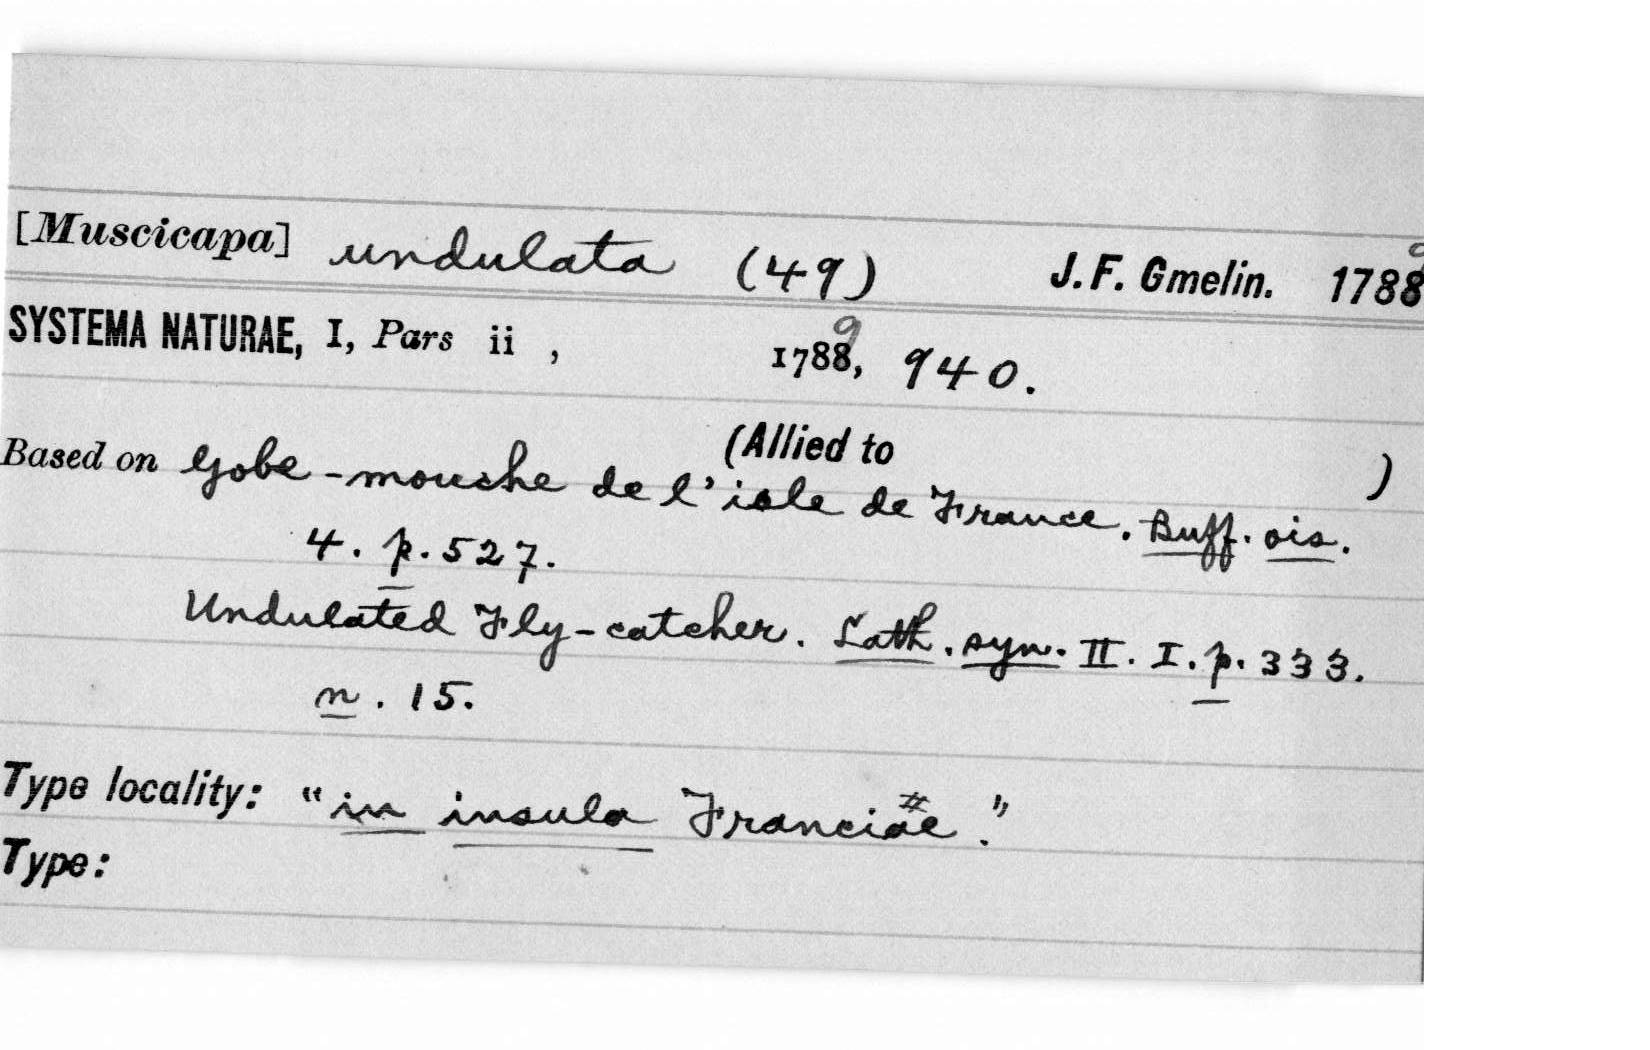 [Muscicapa] undulata (49) J. F. Gmelin. 1788 9
SYSTEMA NATURAE, I, Pars ii , 1788, 9 940.
(Allied to )
Based on Gobe-mouche de l'isle de France. Buff. ois.
4. p. 527.
Undulated Fly-catcher. Lath. syn. II. I. p. 333.
n. 15.
Type locality: "in insula Franciae #."
Type: